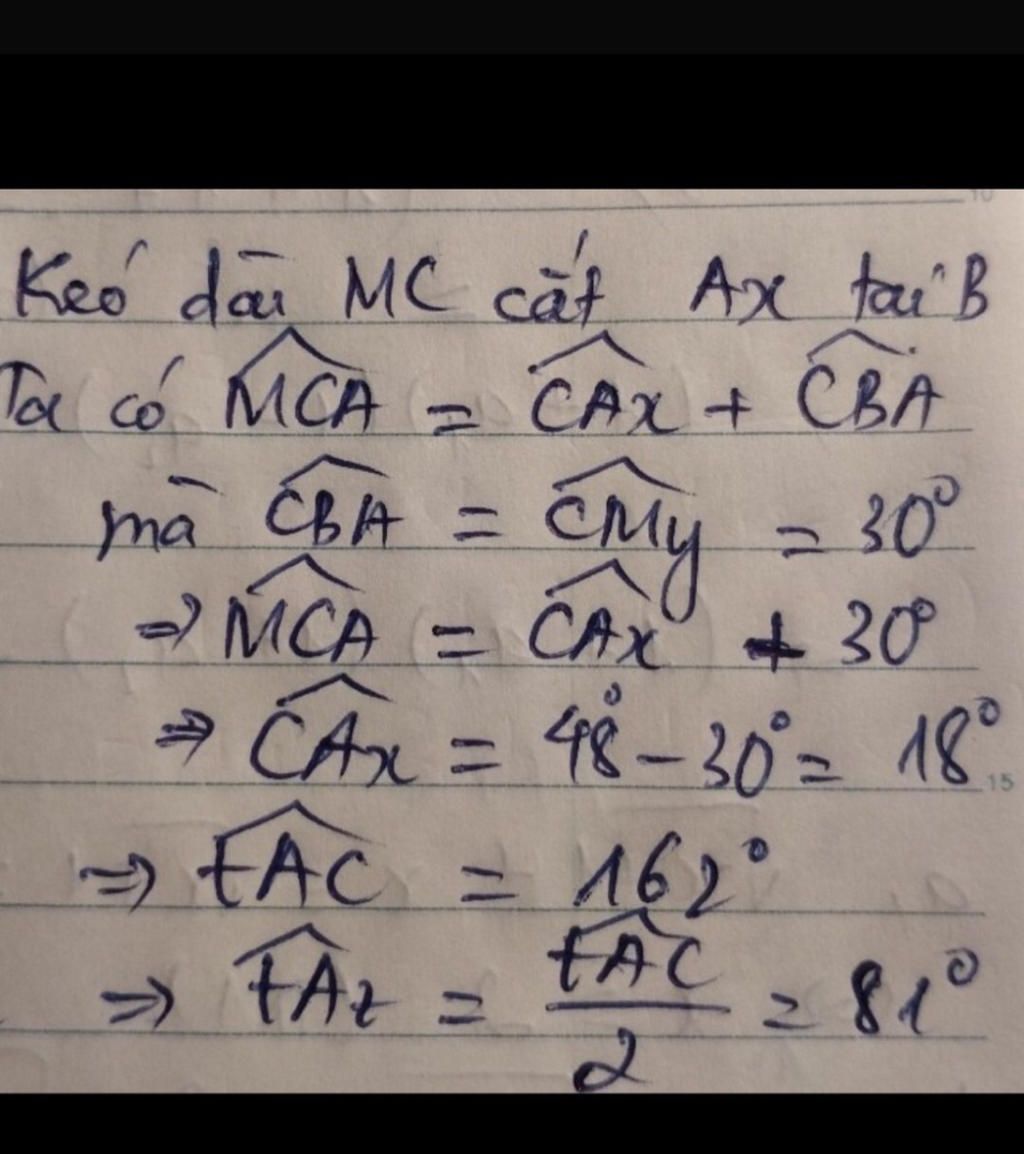 Kéo dài MC cắt Ax tại B
Ta có \widehat{MCA} = \widehat{CAx} + \widehat{CBA}
mà \widehat{CBA} = \widehat{CMy} = 30°
⇒ \widehat{MCA} = \widehat{CAx} + 30°
⇒ \widehat{CAx} = 48° - 30° = 18°
15
⇒ \widehat{tAC} = 162°
⇒ \widehat{tAz} = \frac{\widehat{tAC}}{2} = 81°